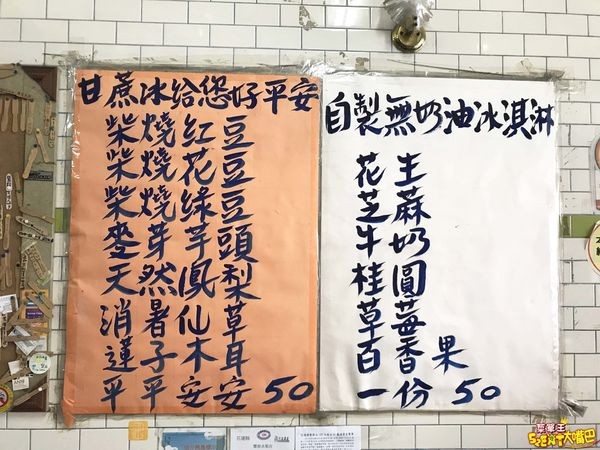 甘蔗冰給您好平安
柴燒紅豆
柴燒花豆
柴燒綠豆
麥芽芋頭
天然鳳梨
消暑仙草
蓮子木耳
平平安安 50
自製無奶油冰淇淋
花生
芝蔴
牛奶
桂圓
草莓
百香果
一份 50